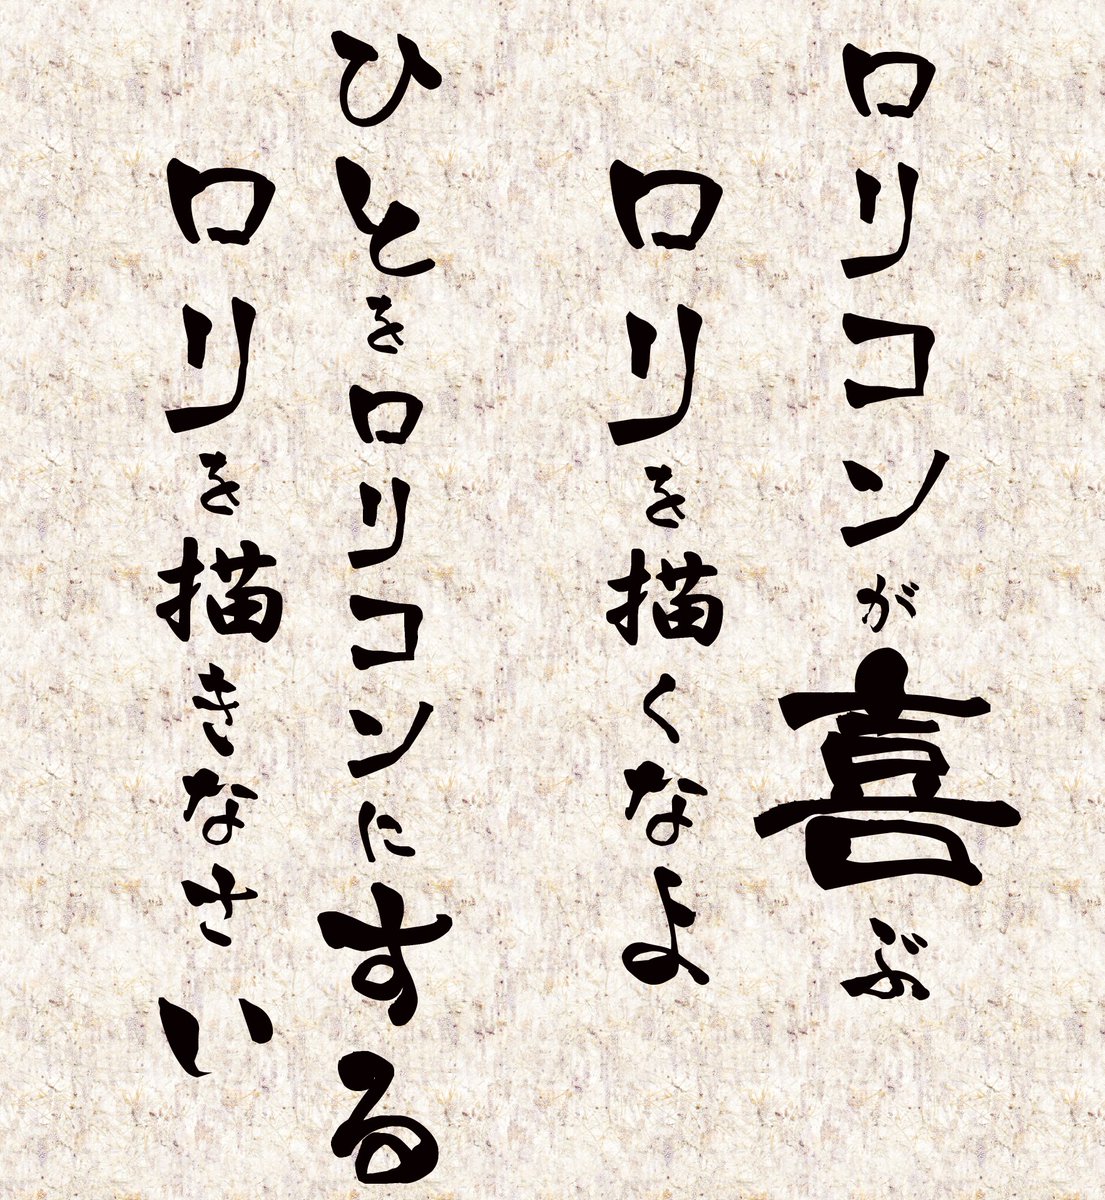 ロリコンが喜ぶ
ロリを描くなよ
ひとをロリコンにする
ロリを描きなさい